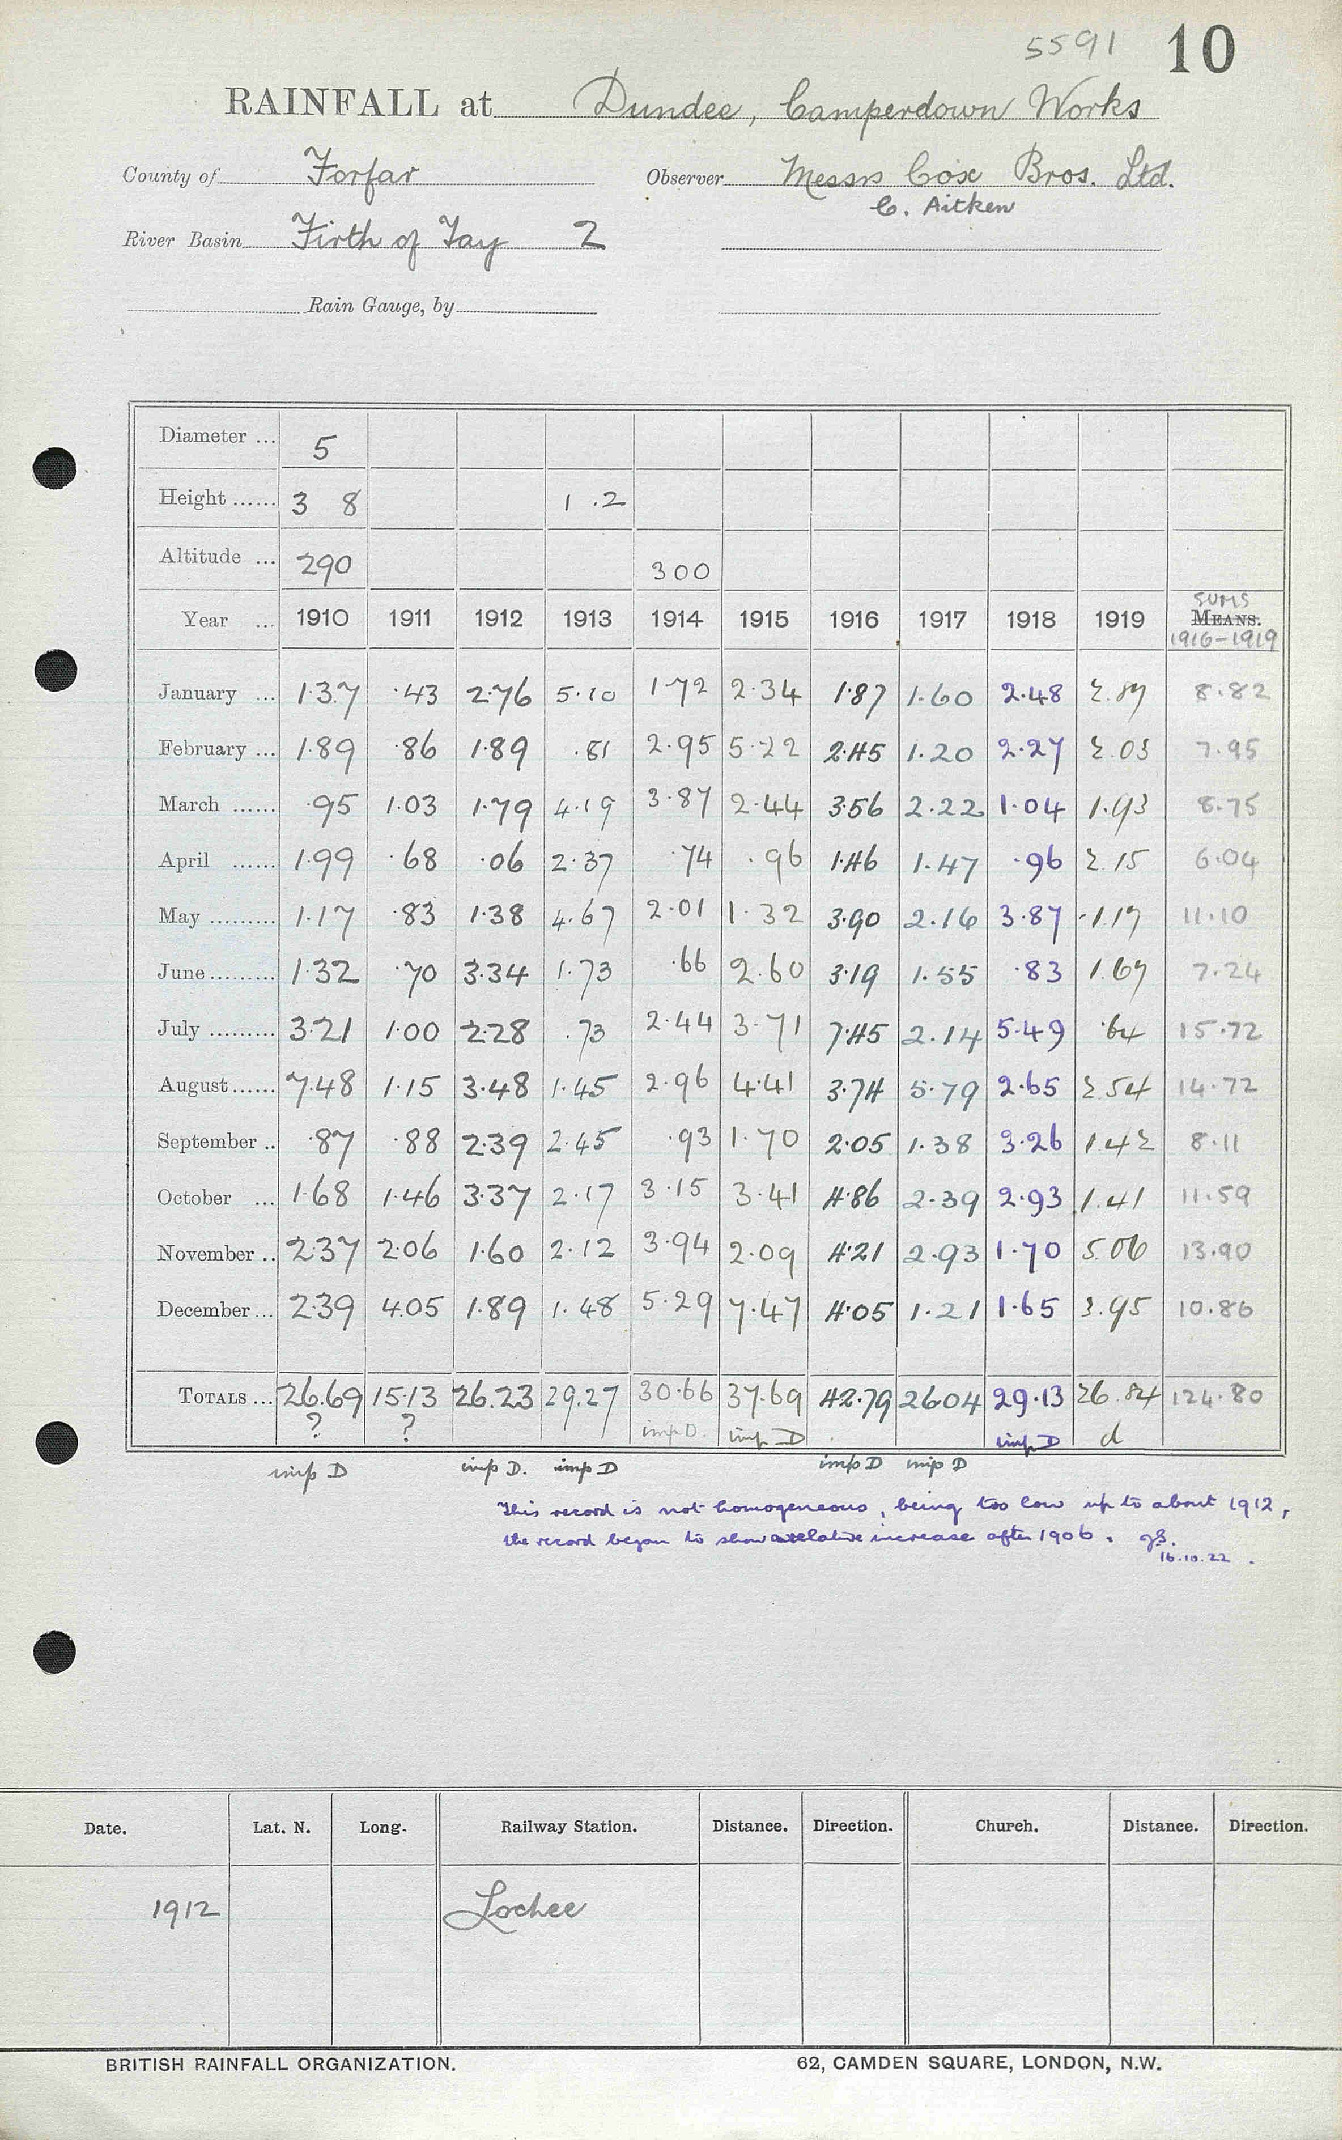 5591 10
RAINFALL at Dundee, Camperdown Works
County of Forfar Observer Messrs Cox Bros. Ltd.
C. Aitken
River Basin Firth of Tay 2
Rain Gauge, by
Diameter ... 5
Height ...... 3 8 1 .2
Altitude ... 290 300
SUMS
Year ... 1910 1911 1912 1913 1914 1915 1916 1917 1918 1919 MEANS.
1916-1919
January ... 1.37 .43 2.76 5.10 1.72 2.34 1.87 1.60 2.48 2.87 8.82
February ... 1.89 .86 1.89 .81 2.95 5.22 2.45 1.20 2.27 2.03 7.95
March ...... .95 1.03 1.79 4.19 3.87 2.44 3.56 2.22 1.04 1.93 8.75
April ...... 1.99 .68 .06 2.37 .74 .96 1.46 1.47 .96 2.15 6.04
May ......... 1.17 .83 1.38 4.67 2.01 1.32 3.90 2.16 3.87 1.17 11.10
June ......... 1.32 .70 3.34 1.73 .66 2.60 3.19 1.55 .83 1.67 7.24
July ......... 3.21 1.00 2.28 .73 2.44 3.71 7.45 2.14 5.49 .64 15.72
August ...... 7.48 1.15 3.48 1.45 2.96 4.41 3.74 5.79 2.65 2.54 14.72
September .. .87 .88 2.39 2.45 .93 1.70 2.05 1.38 3.26 1.42 8.11
October ... 1.68 1.46 3.37 2.17 3.15 3.41 4.86 2.39 2.93 1.41 11.59
November .. 2.37 2.06 1.60 2.12 3.94 2.09 4.21 2.93 1.70 5.06 13.90
December ... 2.39 4.05 1.89 1.48 5.29 7.47 4.05 1.21 1.65 3.95 10.86
TOTALS ... 26.69 15.13 26.23 29.27 30.66 37.69 42.79 26.04 29.13 26.84 124.80
? ? imp D. imp D imp D d
imp D imp D. imp D imp D imp D
This record is not homogeneous, being too low up to about 1912,
the record began to show a relative increase after 1906. JS.
16.10.22.
Date. Lat. N. Long. Railway Station. Distance. Direction. Church. Distance. Direction.
1912 Lochee
BRITISH RAINFALL ORGANIZATION. 62, CAMDEN SQUARE, LONDON, N.W.